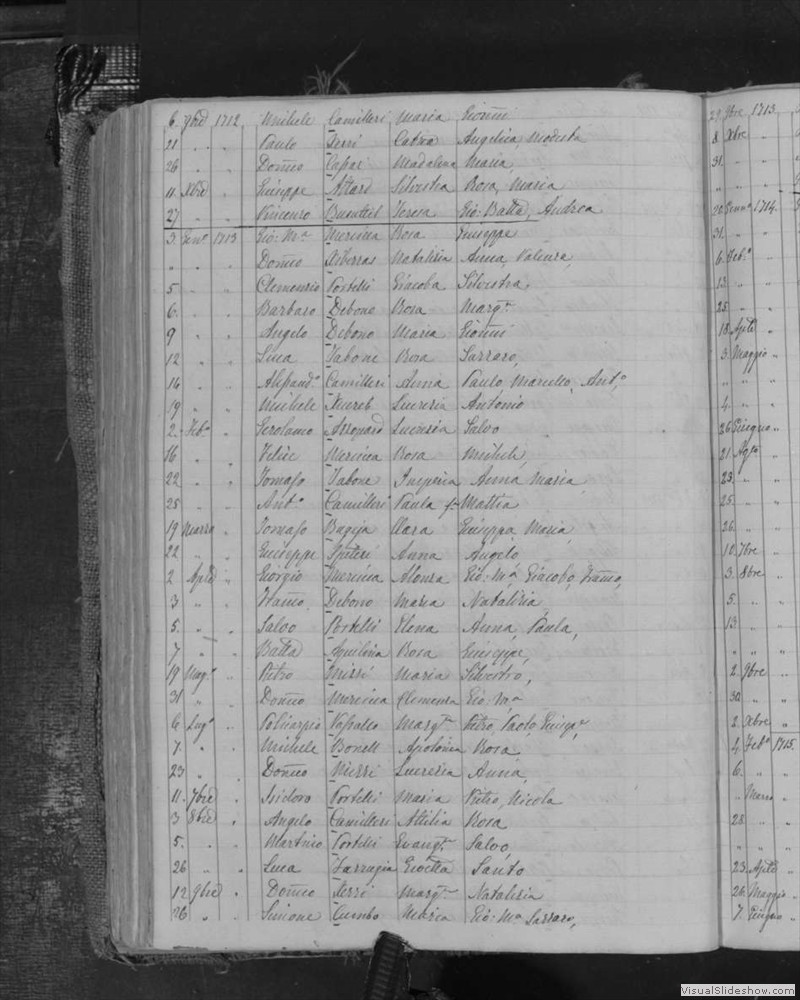 6. 9bre 1712 Michele Camilleri Maria Gionni
21 " " Paulo Xerri Catna Angelica Modesta
26 " " Domco Capar Madalena Maria,
11. Xbre " Giuseppe Attard Silvestra Rosa, Maria
27 " " Vincenzo Buenttil Teresa Gio: Batta, Andrea
3. Genn° 1713 Gio: Ma Mercieca Rosa Giuseppe
" " " Domco Natalizia Anna, Valenza,
5 " " Clemenzio Portelli Giacoba Silvestra,
6. " " Barbaro Debono Rosa Margta
9 " " Angelo Debono Maria Gionni
12 " " Luca Tabone Rosa Lazzaro,
14 " " Alessand° Camilleri Anna Paulo, Marcello, Ant°,
19 " " Michele Xuereb Lucrezia Antonio
2. Feb° " Gerolamo Lucrezia Salvo
16 " " Felice Mercieca Rosa Michele,
22 " " Tomaso Tabone Imperia Anna Maria,
25 " " Ant° Camilleri Paula Mattia
19 Marzo " Tomaso Bagija Clara Giuseppa, Maria,
22 " " Giuseppe Spiteri Anna Angelo
2 Aple " Giorgio Mercieca Alonza Gio: Ma, Giacobo, Franco,
3 " " Franco Debono Maria Natalizia
5. " " Salvo Portelli Elena Anna, Paula,
7 " " Batta Aquilina Rosa Giuseppe,
19 Mag° " Pietro Mizzi Maria Silvestro,
31 " " Domco Mercieca Clemenza Gio: Ma
6 Lug° " Policarpio Vassallo Margta Pietro, Paolo,
7. " " Michele Bonell Apolonia Rosa
23 " " Domco Mizzi Lucrezia Anna,
11. 7bre " Isidoro Portelli Maria Pietro, Nicola
3 8bre " Angelo Camilleri Attilia Rosa
5. " " Martino Portelli Evangta Salvo
26 " " Luca Farrugia Gioetta Santo
12 9bre " Domco Xerri Margta Natalizia
26 " " Simone Cumbo Maria Gio: Ma Lazzaro,
29 9bre 1713.
8 Xbre "
31. " "
" " "
20 Genn° 1714.
31. " "
6 Feb° "
13 " "
25. " "
18. Aple "
3. Maggio "
" " "
4. " "
26 Giugno "
21. Agto "
23. " "
25. " "
26. " "
10. 7bre "
3. 8bre "
5. " "
13 " "
" " "
2. 9bre "
30. " "
2. Xbre "
4. Feb° 1715.
6. " "
" Marzo "
28. " "
" " "
23. Aple "
26. Maggio "
7. Giugno "
VisualSlideshow.com